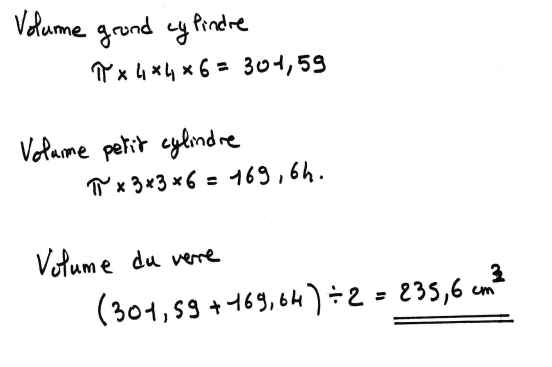 Volume grand cylindre
π × 4 × 4 × 6 = 301,59
Volume petit cylindre
π × 3 × 3 × 6 = 169,64.
Volume du verre
(301,59 + 169,64) ÷ 2 = 235,6 cm³